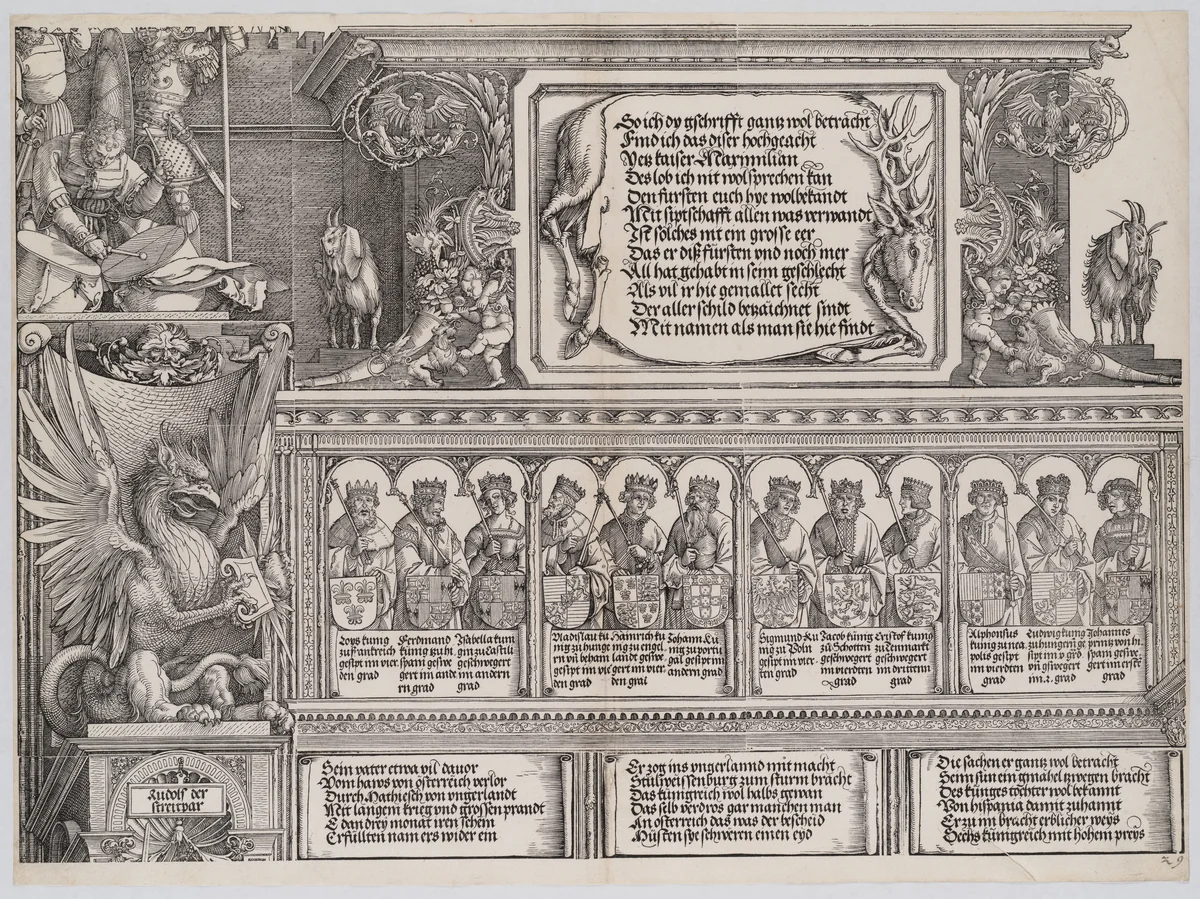 So ich dy gschrifft gantz wol betracht
Find ich das diser hochgeacht
Yetz kaiser Maximilian
Des lob ich nit wolsprechen kan
Den fursten euch hye wolbekandt
Mit siptschafft allen was verwandt
Ist solches nit ein grosse eer
Das er diß fürsten vnd noch mer
All hat gehabt in seim geschlecht
Als vil ir hie gemallet secht
Der aller schild bezaichnet sindt
Mit namen als man sie hie findt
Loys kunig
zu franckreich
gesipt im vier
den grad
Ferdinand
kunig zu hi
spani geswe
gert im ande
rn grad
Isabella kuni
gin zu Castili
geschwegert
im andern
grad
Vladislau kü
nig zu hunge
rn vn beham
gesipt im vier
den grad
Hainrich kü
nig zu engel
landt geswe
gert im vier
den grad
Johann Kü
nig zu portu
gal gesipt im
andern grad
Sigmund Kü
nig zu Poln
gesipt im vier
ten grad
Jacob künig
zü Schotten
geschwegert
im vierdten
grad
Cristof kunig
zü Tennmarkt
geschwegert
im dritten
grad
Alphonsus
kunig zu nea
polis gesipt
im vierdten
grad
Ludwig kunig
zu hungern ge
sipt im v grd
vn gswegert
im .2. grad
Johannes
printz von hi
spani geswe
gert im erstē
grad
Rudolf der
streitpar
Sein vater etwa vil davor
Vom haws von österreich verlor
Durch Mathiesch von vngerlandt
Mit langem krieg vnd grossen prandt
E dan drey monat iren schein
Erfüllten nam ers wider ein
Er zog ins vngerlannd mit macht
Stülweissenburg zum sturm bracht
Das kunigreich wol halbs gewan
Das selb verdros gar manchen man
In osterreich das was der bescheid
Müsten sye schweren einen eyd
Die sachen er gantz wol betracht
Seim sun ein gmahel zwegen bracht
Des künges tochter wol bekannt
Von hispania damit zuhannt
Er zu im bracht erblicher weys
Sechs kunigreich mit hohem preys
29